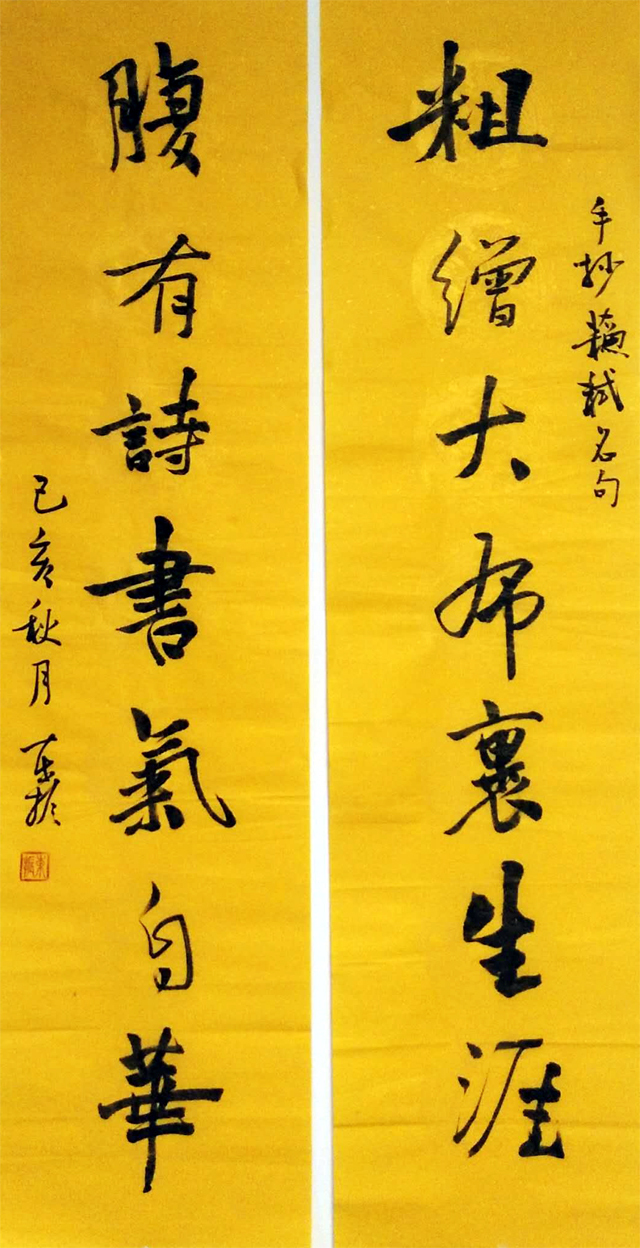 手抄蘓軾名句
粗繒大布裹生涯
腹有詩書氣自華
己亥秋月